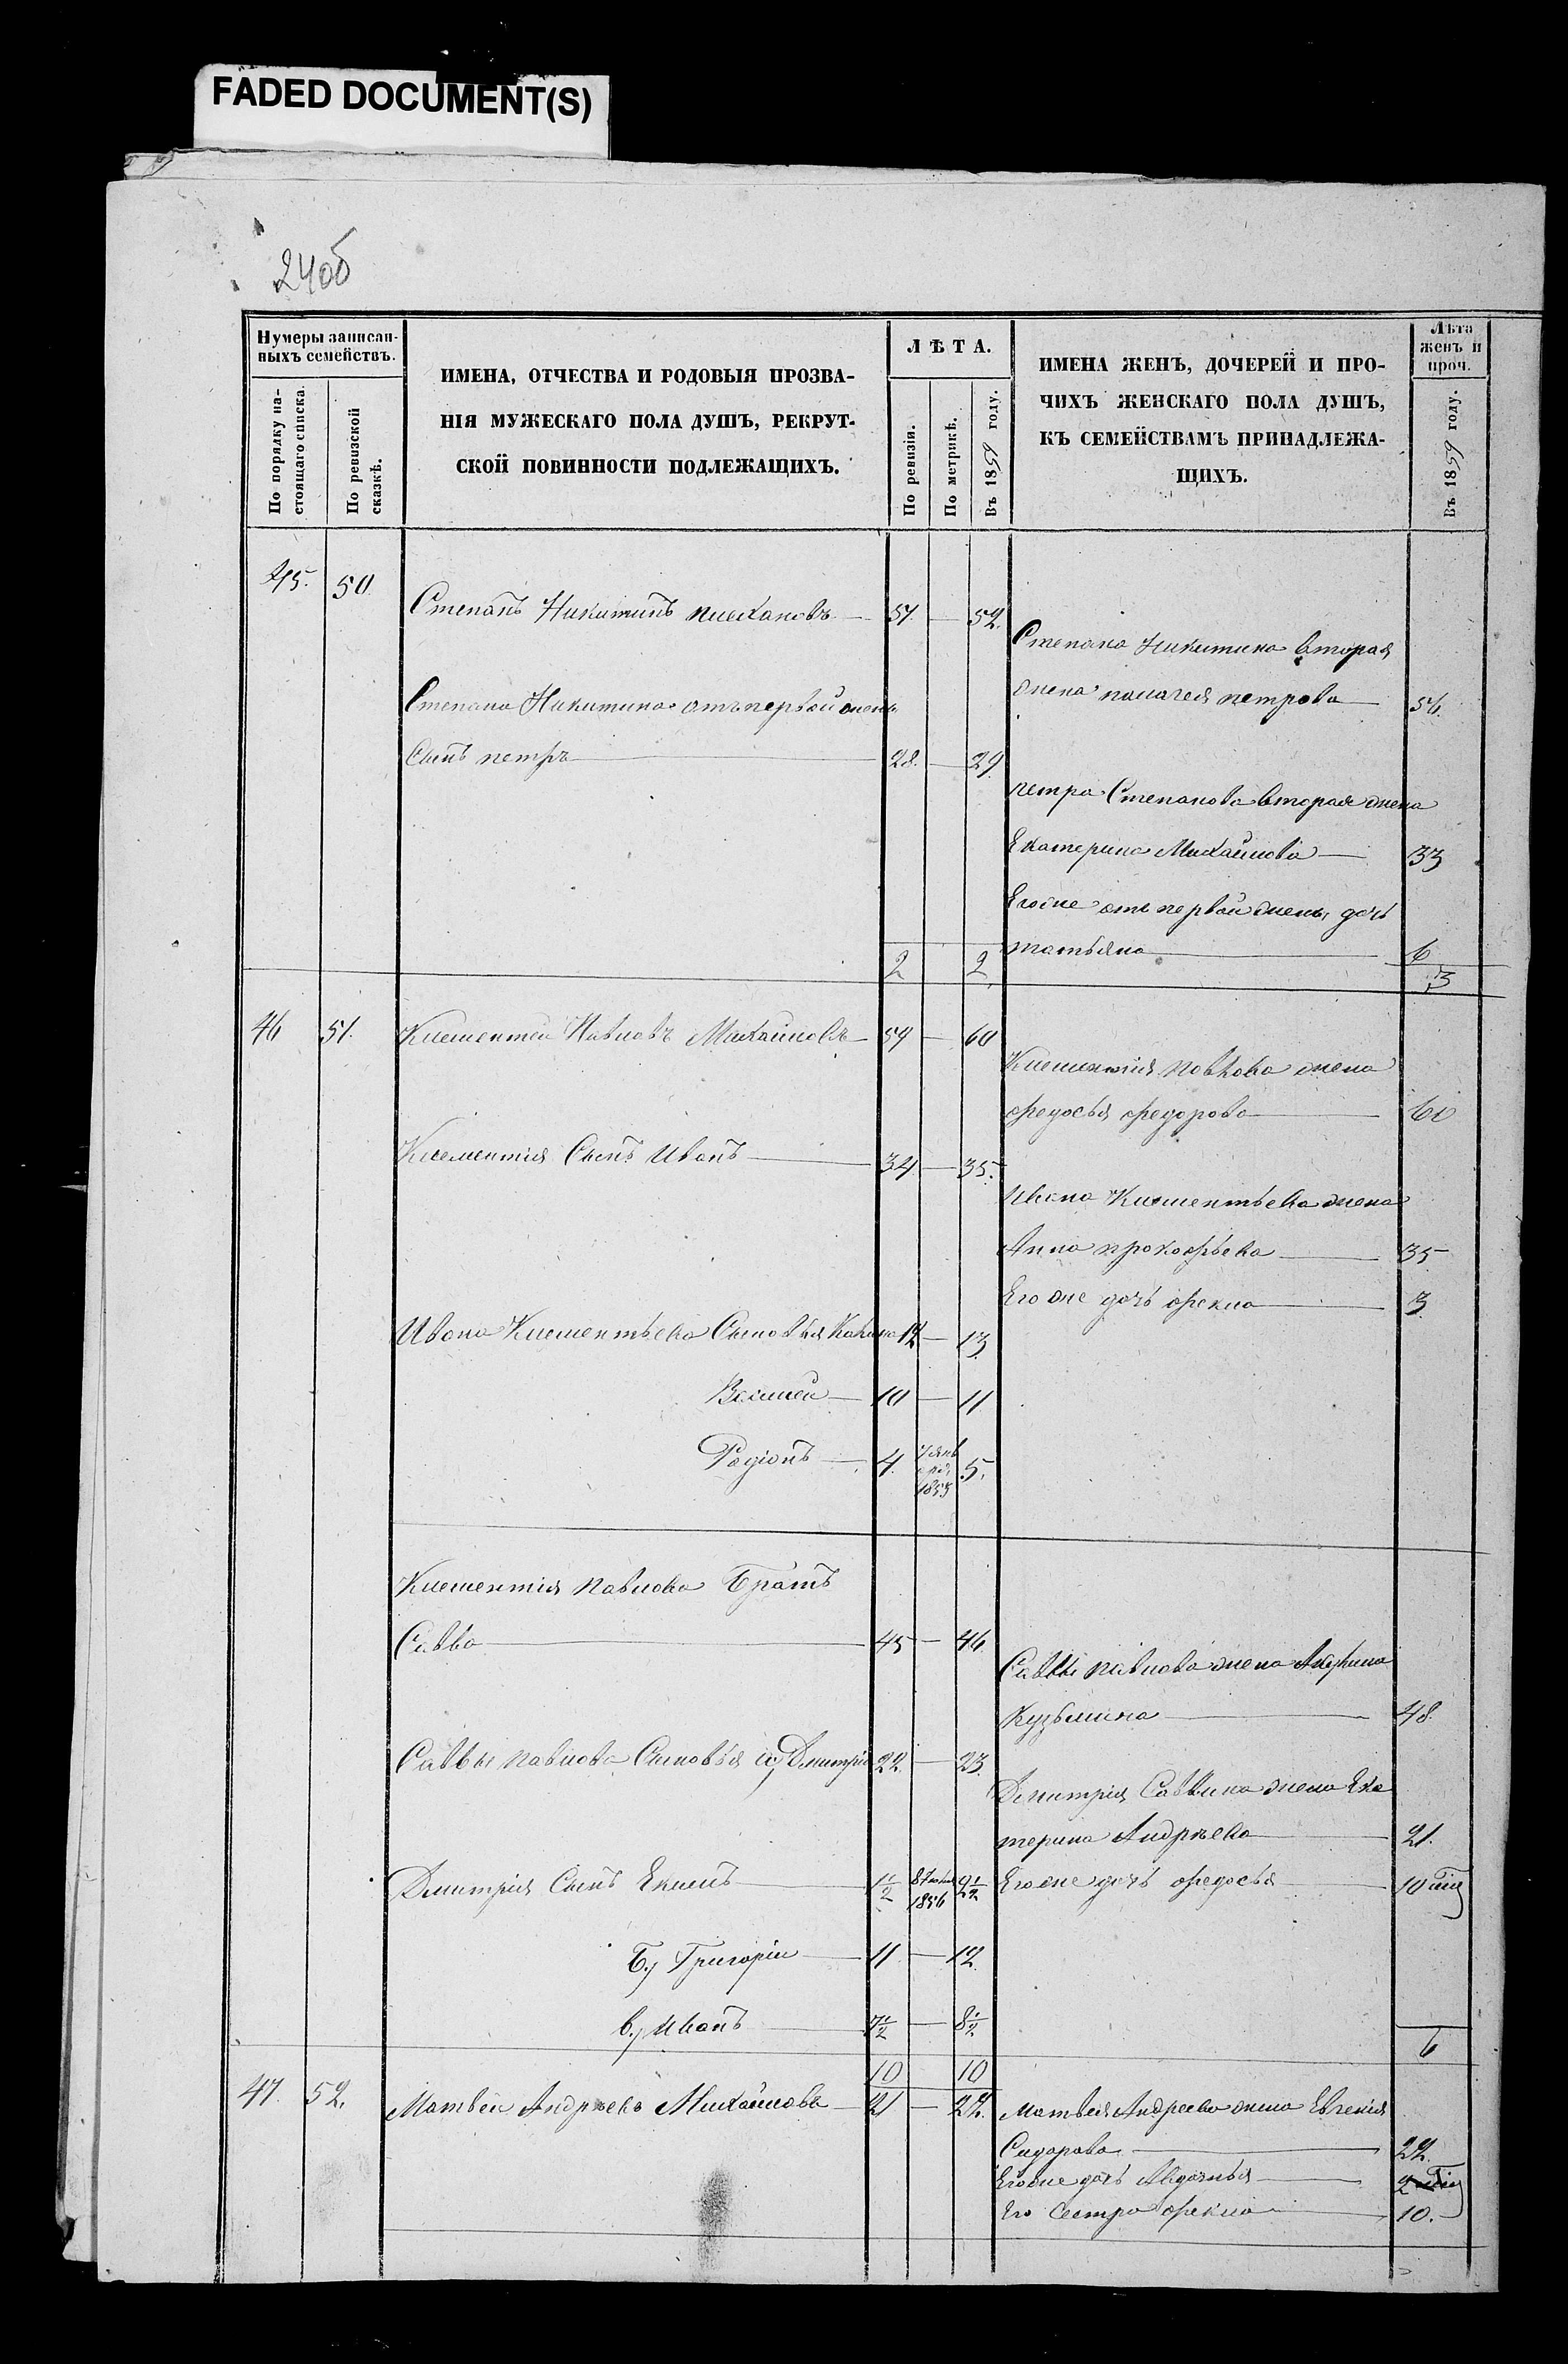 FADED DOCUMENT(S)
24об
Нумеры записан-
ныхъ семействъ.
По порядку на-
стоящаго списка.
По ревизской
сказкѣ.
ИМЕНА, ОТЧЕСТВА И РОДОВЫЯ ПРОЗВА-
НІЯ МУЖЕСКАГО ПОЛА ДУШЪ, РЕКРУТ-
СКОЙ ПОВИННОСТИ ПОДЛЕЖАЩИХЪ.
ЛѢТА.
По ревизіи.
По метрикѣ.
Въ 1859 году.
ИМЕНА ЖЕНЪ, ДОЧЕРЕЙ И ПРО-
ЧИХЪ ЖЕНСКАГО ПОЛА ДУШЪ,
КЪ СЕМЕЙСТВАМЪ ПРИНАДЛЕЖА-
ЩИХЪ.
Лѣта
женъ и
проч.
Въ 1859 году.
45. 50 Степанъ Никитинъ плеханов 51. — 52.
Степана Никитина вторая
жена палагея петрова — 54.
Степана Никитина отъ первой жены
Сынъ петръ — 28. — 29.
петра Степанова вторая жена
Екатерина Михайлова — 33
Егоже отъ первой жены дочь
татьяна — 6
2 2 3
46 51. Клементей Павловъ Михайловъ — 59 — 60
Клементія павлова жена
федосья федорова — 60
Клементія Сынъ Иванъ — 34 — 35.
Ивана Клементьева жена
Анна прокофьева — 35
Его же дочь фекла — 3
Ивана Клементьева Сыновья 12 — 13.
— 10 — 11
Родіонъ — 4. 1853 5.
Клементія павлова Братъ
Савва — 45 — 46.
Саввы павлова жена
Кузьмина — 48.
Саввы павлова Сыновья а) Дмитрій 22. — 23.
Дмитрія Саввина жена Ека
терина Андреева — 21.
Дмитрія Сынъ — 1½ 1856 2½
Егоже дочь федосья — 10
б) Григорій — 11 — 12.
в) Иванъ — 7½ — 8½
6
10 10
47. 52. Матвей Андреевъ Михайловъ — 21 — 22.
Матвея Андреева жена Евгенія
Сидорова — 22.
Егоже дочь Авдотья — 2
Его Сестра фекла — 10.